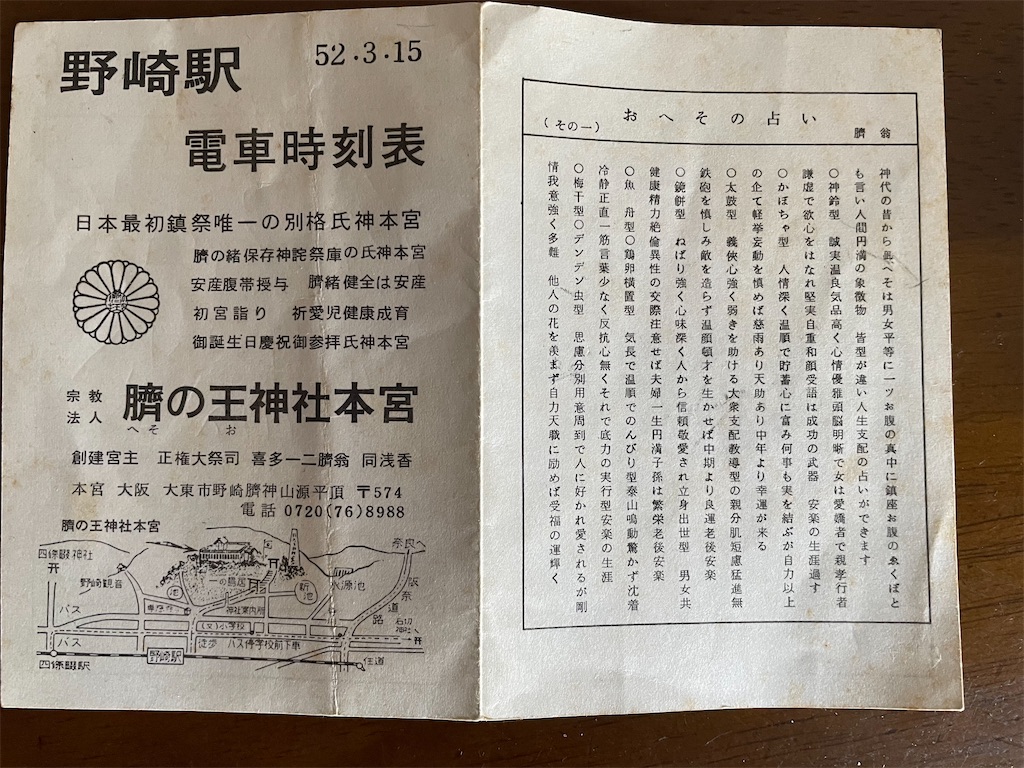 野崎駅
52・3・15
電車時刻表
日本最初鎮祭唯一の別格氏神本宮
臍の緒保存神詫祭庫の氏神本宮
安産腹帯授与 臍緒健全は安産
初宮詣り 祈愛児健康成育
御誕生日慶祝御参拝氏神本宮
宗教法人 臍の王神社本宮
へそ お
創建宮主 正権大祭司 喜多一二臍翁 同浅香
本宮 大阪 大東市野崎臍神山源平頂 〒574
電話 0720(76)8988
臍の王神社本宮
四條畷神社
野崎観音
奈良へ
一の鳥居
池
新池
水源池
阪奈道路
専應寺
神社案内所
石切神社へ
バス
(文)小学校
バス
徒歩 バス停学校前下車
四條畷駅
野崎駅
住道
(その一)
おへその占い
臍翁
神代の昔から臍へそは男女平等に一ツお腹の真中に鎮座お腹のゑくぼと
も言い人間円満の象徴物 皆型が違い人生支配の占いができます
〇神鈴型 誠実温良気品高く心情優雅頭脳明晰で女は愛嬌者で親孝行者
謙虚で欲心をはなれ堅実自重和顔受語は成功の武器 安楽の生涯過す
〇かぼちゃ型 人情深く温順で貯蓄心に富み何事も実を結ぶが自力以上
の企て軽挙妄動を慎めば慈雨あり天助あり中年より幸運が来る
〇太鼓型 義俠心強く弱きを助ける大衆支配教導型の親分肌短慮猛進無
鉄砲を慎しみ敵を造らず温顔頓才を生かせば中期より良運老後安楽
〇鏡餅型 ねばり強く心味深く人から信頼敬愛され立身出世型 男女共
健康精力絶倫異性の交際注意せば夫婦一生円満子孫は繁栄老後安楽
〇魚 舟型〇鶏卵横置型 気長で温順でのんびり型泰山鳴動驚かず沈着
冷静正直一筋言葉少なく反抗心無くそれで底力の実行型安楽の生涯
〇梅干型〇デンデン虫型 思慮分別用意周到で人に好かれ愛されるが剛
情我意強く多難 他人の花を羨まず自力天職に励めば受福の運輝く